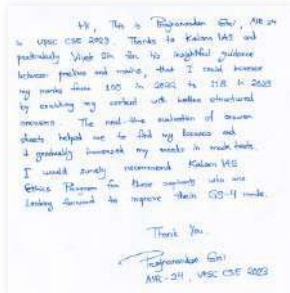 Hi, This is Pragnanandan Giri, AIR 24
in UPSC CSE 2023. Thanks to Kalam IAS and
particularly Vivek Sir for his insightful guidance
between prelims and mains, that I could increase
my marks from 100 in 2022 to 118 in 2023
by enriching my content with better structured
answers. The real-time evaluation of answer
sheets helped me to find my and
I gradually increased my marks in mock tests.
I would surely recommend Kalam IAS
Ethics Program for those aspirants who are
looking forward to improve their GS-4 marks.
Thank You.
Giri
AIR-24, UPSC CSE 2023